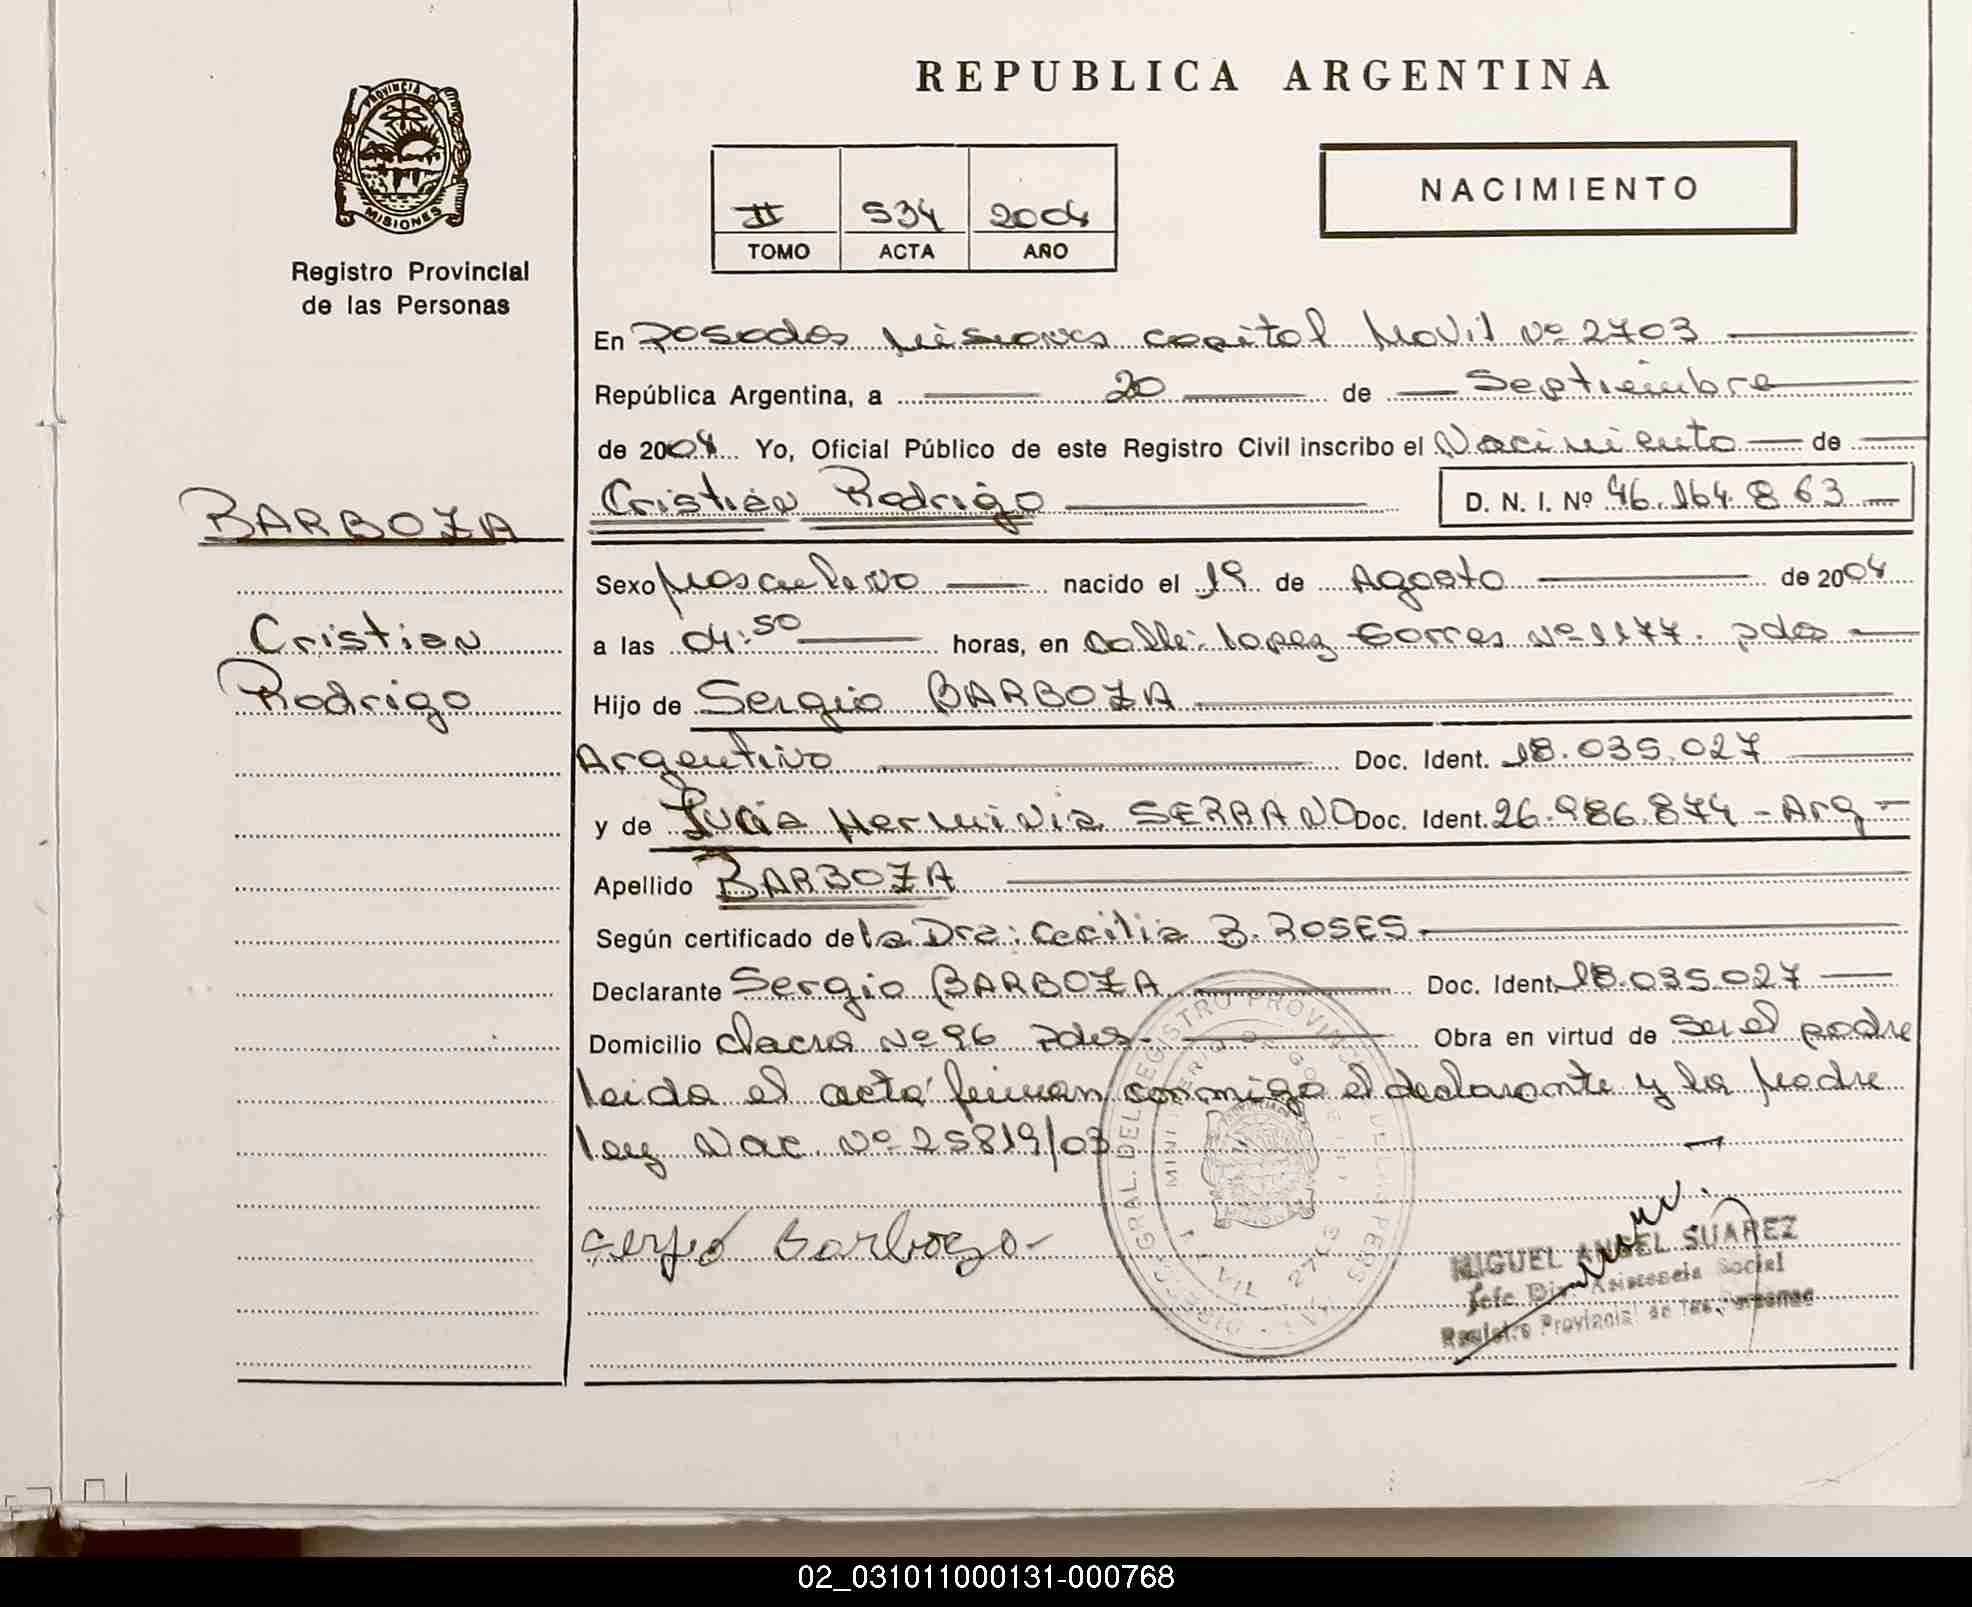 REPUBLICA ARGENTINA
PROVINCIA DE
MISIONES
Registro Provincial
de las Personas
II 534 2004
TOMO ACTA AÑO
NACIMIENTO
En Posadas Misiones capital Movil Nº 2703
República Argentina, a 20 de Septiembre
de 2004 Yo, Oficial Público de este Registro Civil inscribo el Nacimiento de
BARBOZA
Cristian Rodrigo D. N. I. Nº 46.164.863
Sexo Masculino nacido el 19 de Agosto de 2004
Cristian
a las 04:50 horas, en calle: Lopez Torres Nº 1177. Pdas
Rodrigo
Hijo de Sergio BARBOZA
Argentino Doc. Ident. 18.035.027
y de Lucia Herminia SERRANO Doc. Ident. 26.986.874 - Arg -
Apellido BARBOZA
Según certificado de la Dra: Cecilia B. ROSES.
Declarante Sergio BARBOZA Doc. Ident. 18.035.027
Domicilio chacra Nº 96 Pdas. Obra en virtud de Ser el padre
leida el acta firman conmigo el declarante y la Madre
ley Nac. Nº 25819/03
Sergio Barboza
MIGUEL ANGEL SUAREZ
Jefe Asistencia Social
Registro Provincial de las Personas
02_031011000131-000768